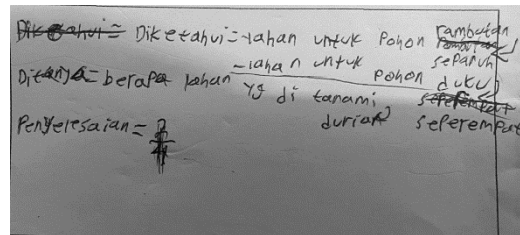 Diketahui = lahan untuk Pohon rambutan separuh
- lahan untuk pohon duku seperempat
Ditanya = berapa lahan yg di tanami durian
Penyelesaian = 2/4